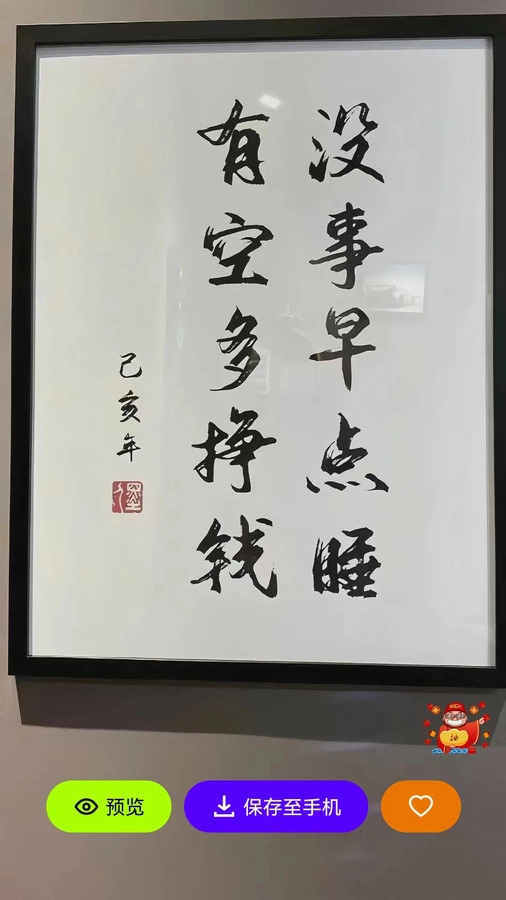 没事早点睡
有空多挣钱
己亥年
预览
保存至手机